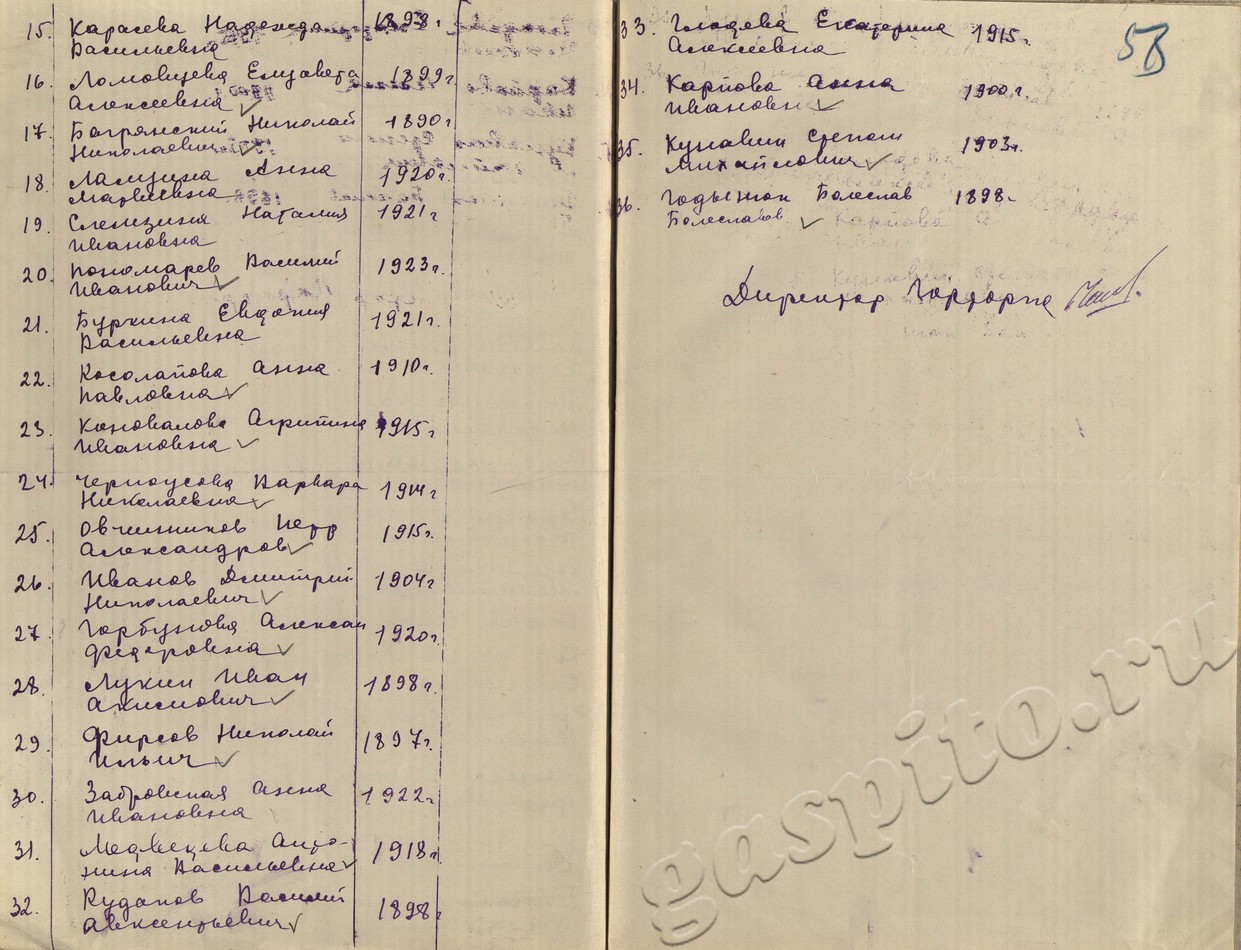 15. Карасева Надежда 1898 г
Васильевна
16. Ломовцева Елизавета 1899 г
Алексеевна
17. Багрянский Николай 1890 г
Николаевич
18. Анна 1920 г.
Матвеевна
19. Слепзина Наталия 1921 г
Ивановна
20. Пономарев Василий 1923 г.
Иванович
21. Буркина Евдокия 1921 г.
Васильевна
22. Косолапова Анна 1910 г.
Павловна
23. Коновалова Агрипина 1915 г
Ивановна
24. Черноусова Варвара 1914 г
Николаевна
25. Овчинников Петр 1915 г.
Александров
26. Иванов Дмитрий 1904 г
Николаевич
27. Горбунова Алексан 1920 г.
Федоровна
28. Лукин Иван 1898 г.
Акимович
29. Фирсов Николай 1897 г.
Ильич
30. Забровская Анна 1922 г.
Ивановна
31. Медведева Анто- 1918 г.
нина Васильевна
32. Рудаков Василий 1898
Авксентьевич
33. Екатерина 1915 г.
Алексеевна
34. Карпова Анна 1900 г.
Ивановн
35. Кунавин Степан 1903 г.
Михайлович
36. Болеслав 1898 г
Болеславов
Директор Горторга
58
gaspito.ru